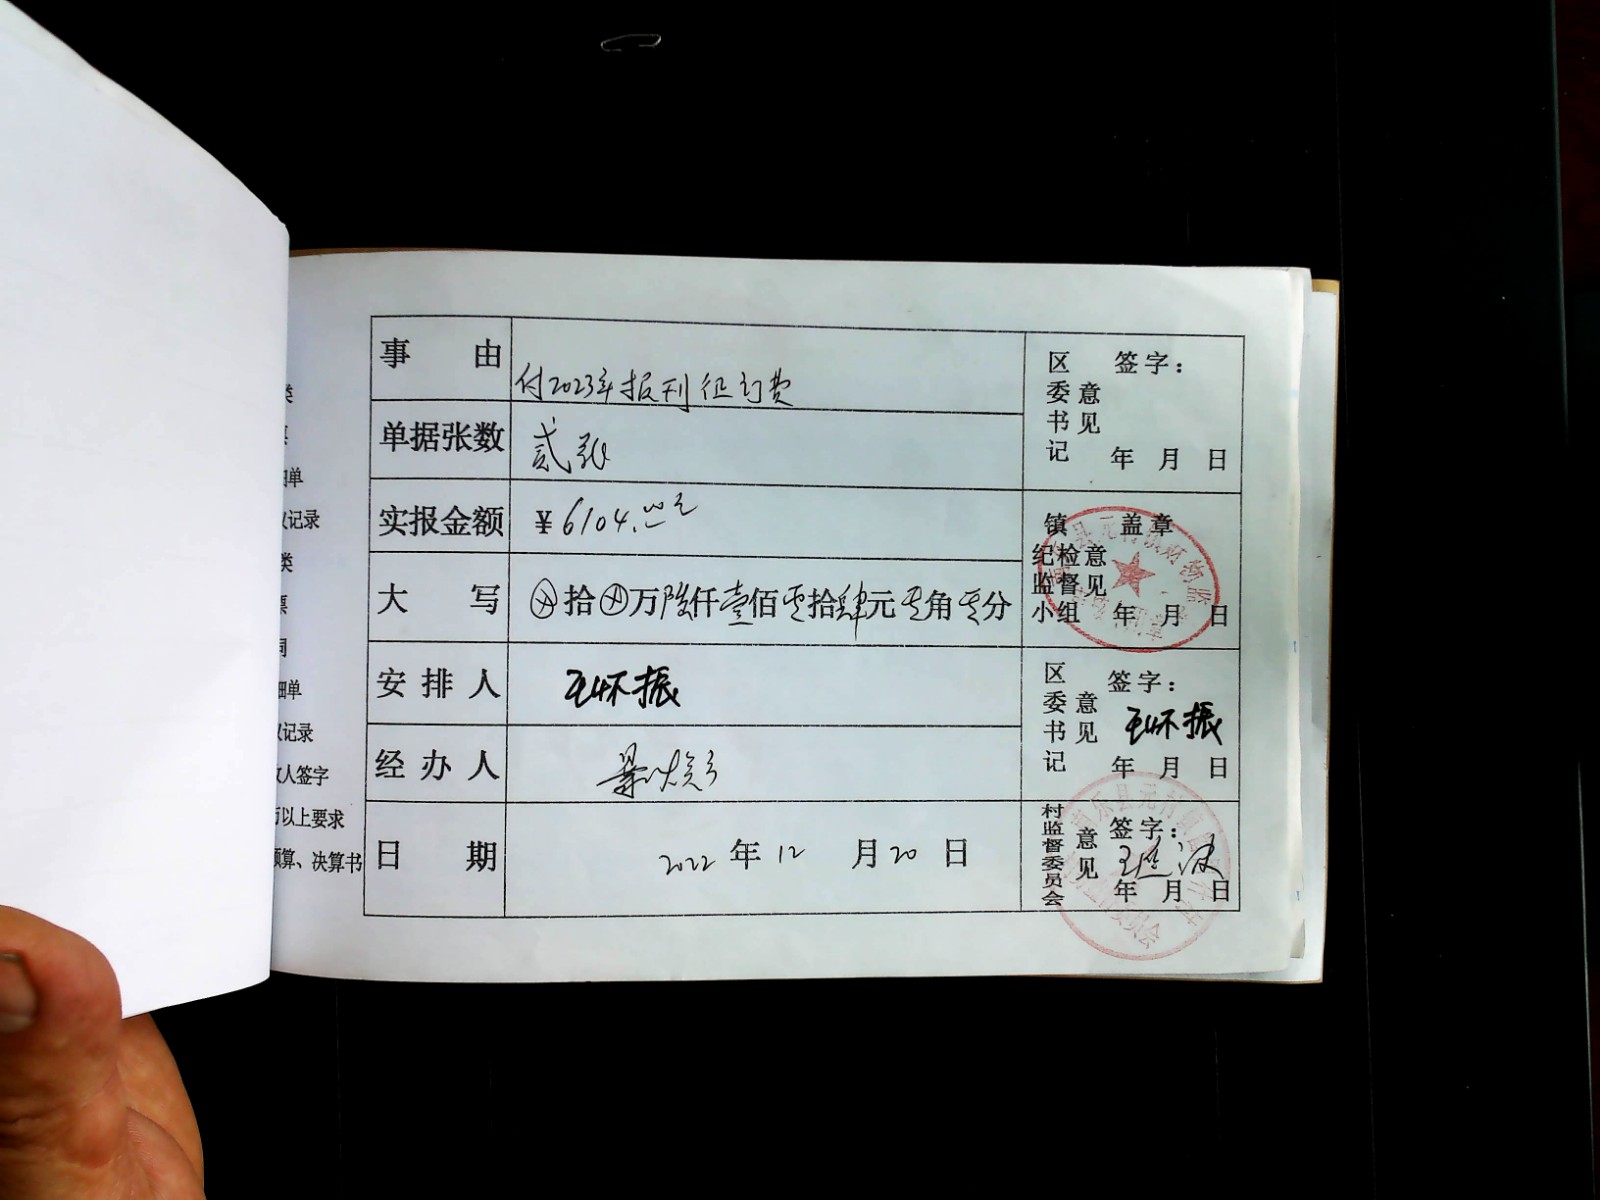 类
细单
议记录
类
票
同
细单
议记录
人签字
万以上要求
预算、决算书
事由
付2023年报刊征订费
单据张数
贰张
实报金额
¥6104.00元
大写
⊗拾⊗万陆仟壹佰零拾肆元零角零分
安排人
王怀振
经办人
日期
2022年12月20日
区委书记意见
签字：
年月日
镇纪检监督小组意见
盖章
年月日
区委书记意见
签字：
王怀振
年月日
村监督委员会意见
签字：
年月日